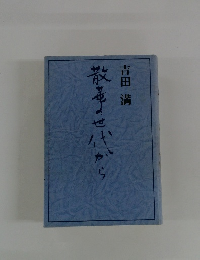 吉田 満
散華の世代から